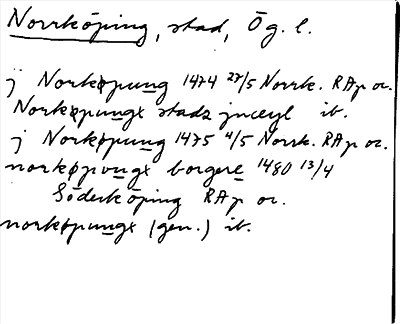 Norrköping, stad, Ög. l.
j Norkøpung 1474 27/5 Norrk. RAp or.
Norkøpungx stadz jnceyl ib.
j Norkøpung 1475 4/5 Norrk. RAp or.
norkøpungx borgere 1480 13/4
Söderköping RAp or.
norkøpungx (gen.) ib.